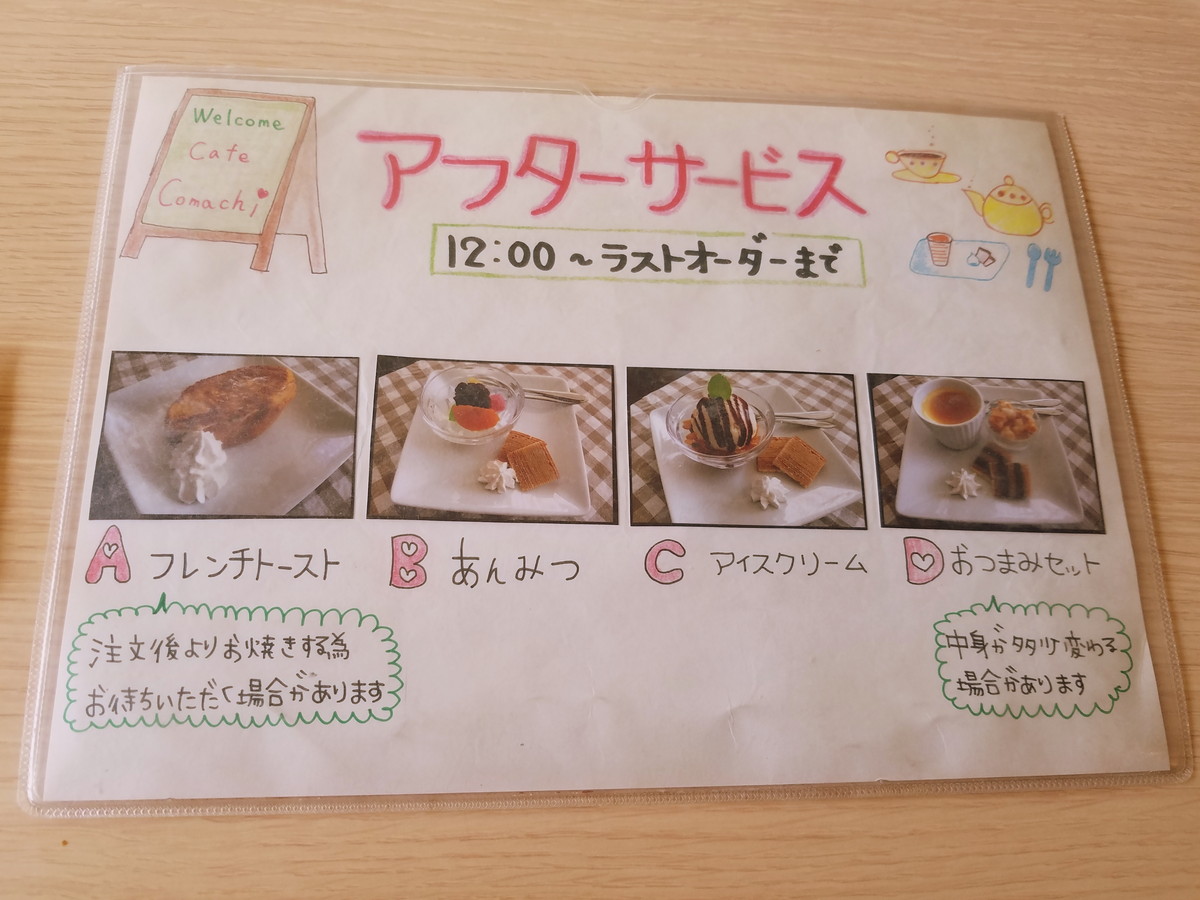 Welcome
Cafe
Comachi
アフターサービス
12:00～ラストオーダーまで
A フレンチトースト
B あんみつ
C アイスクリーム
D おつまみセット
注文後よりお焼きする為
お待ちいただく場合があります
中身が多少変わる
場合があります